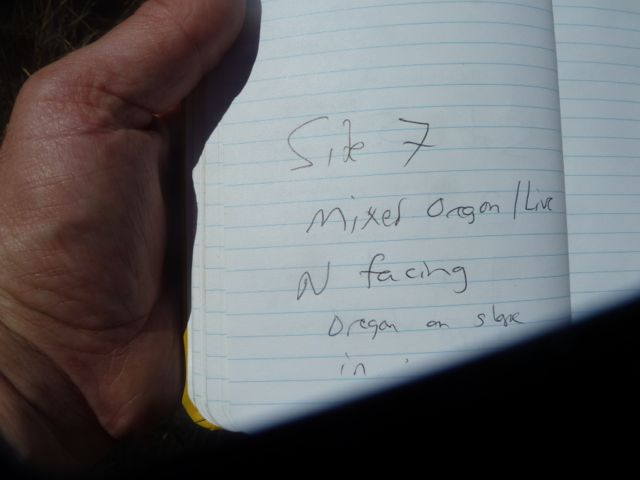 Site 7
Mixed Oregon / Live
N facing
Oregon on slope
in